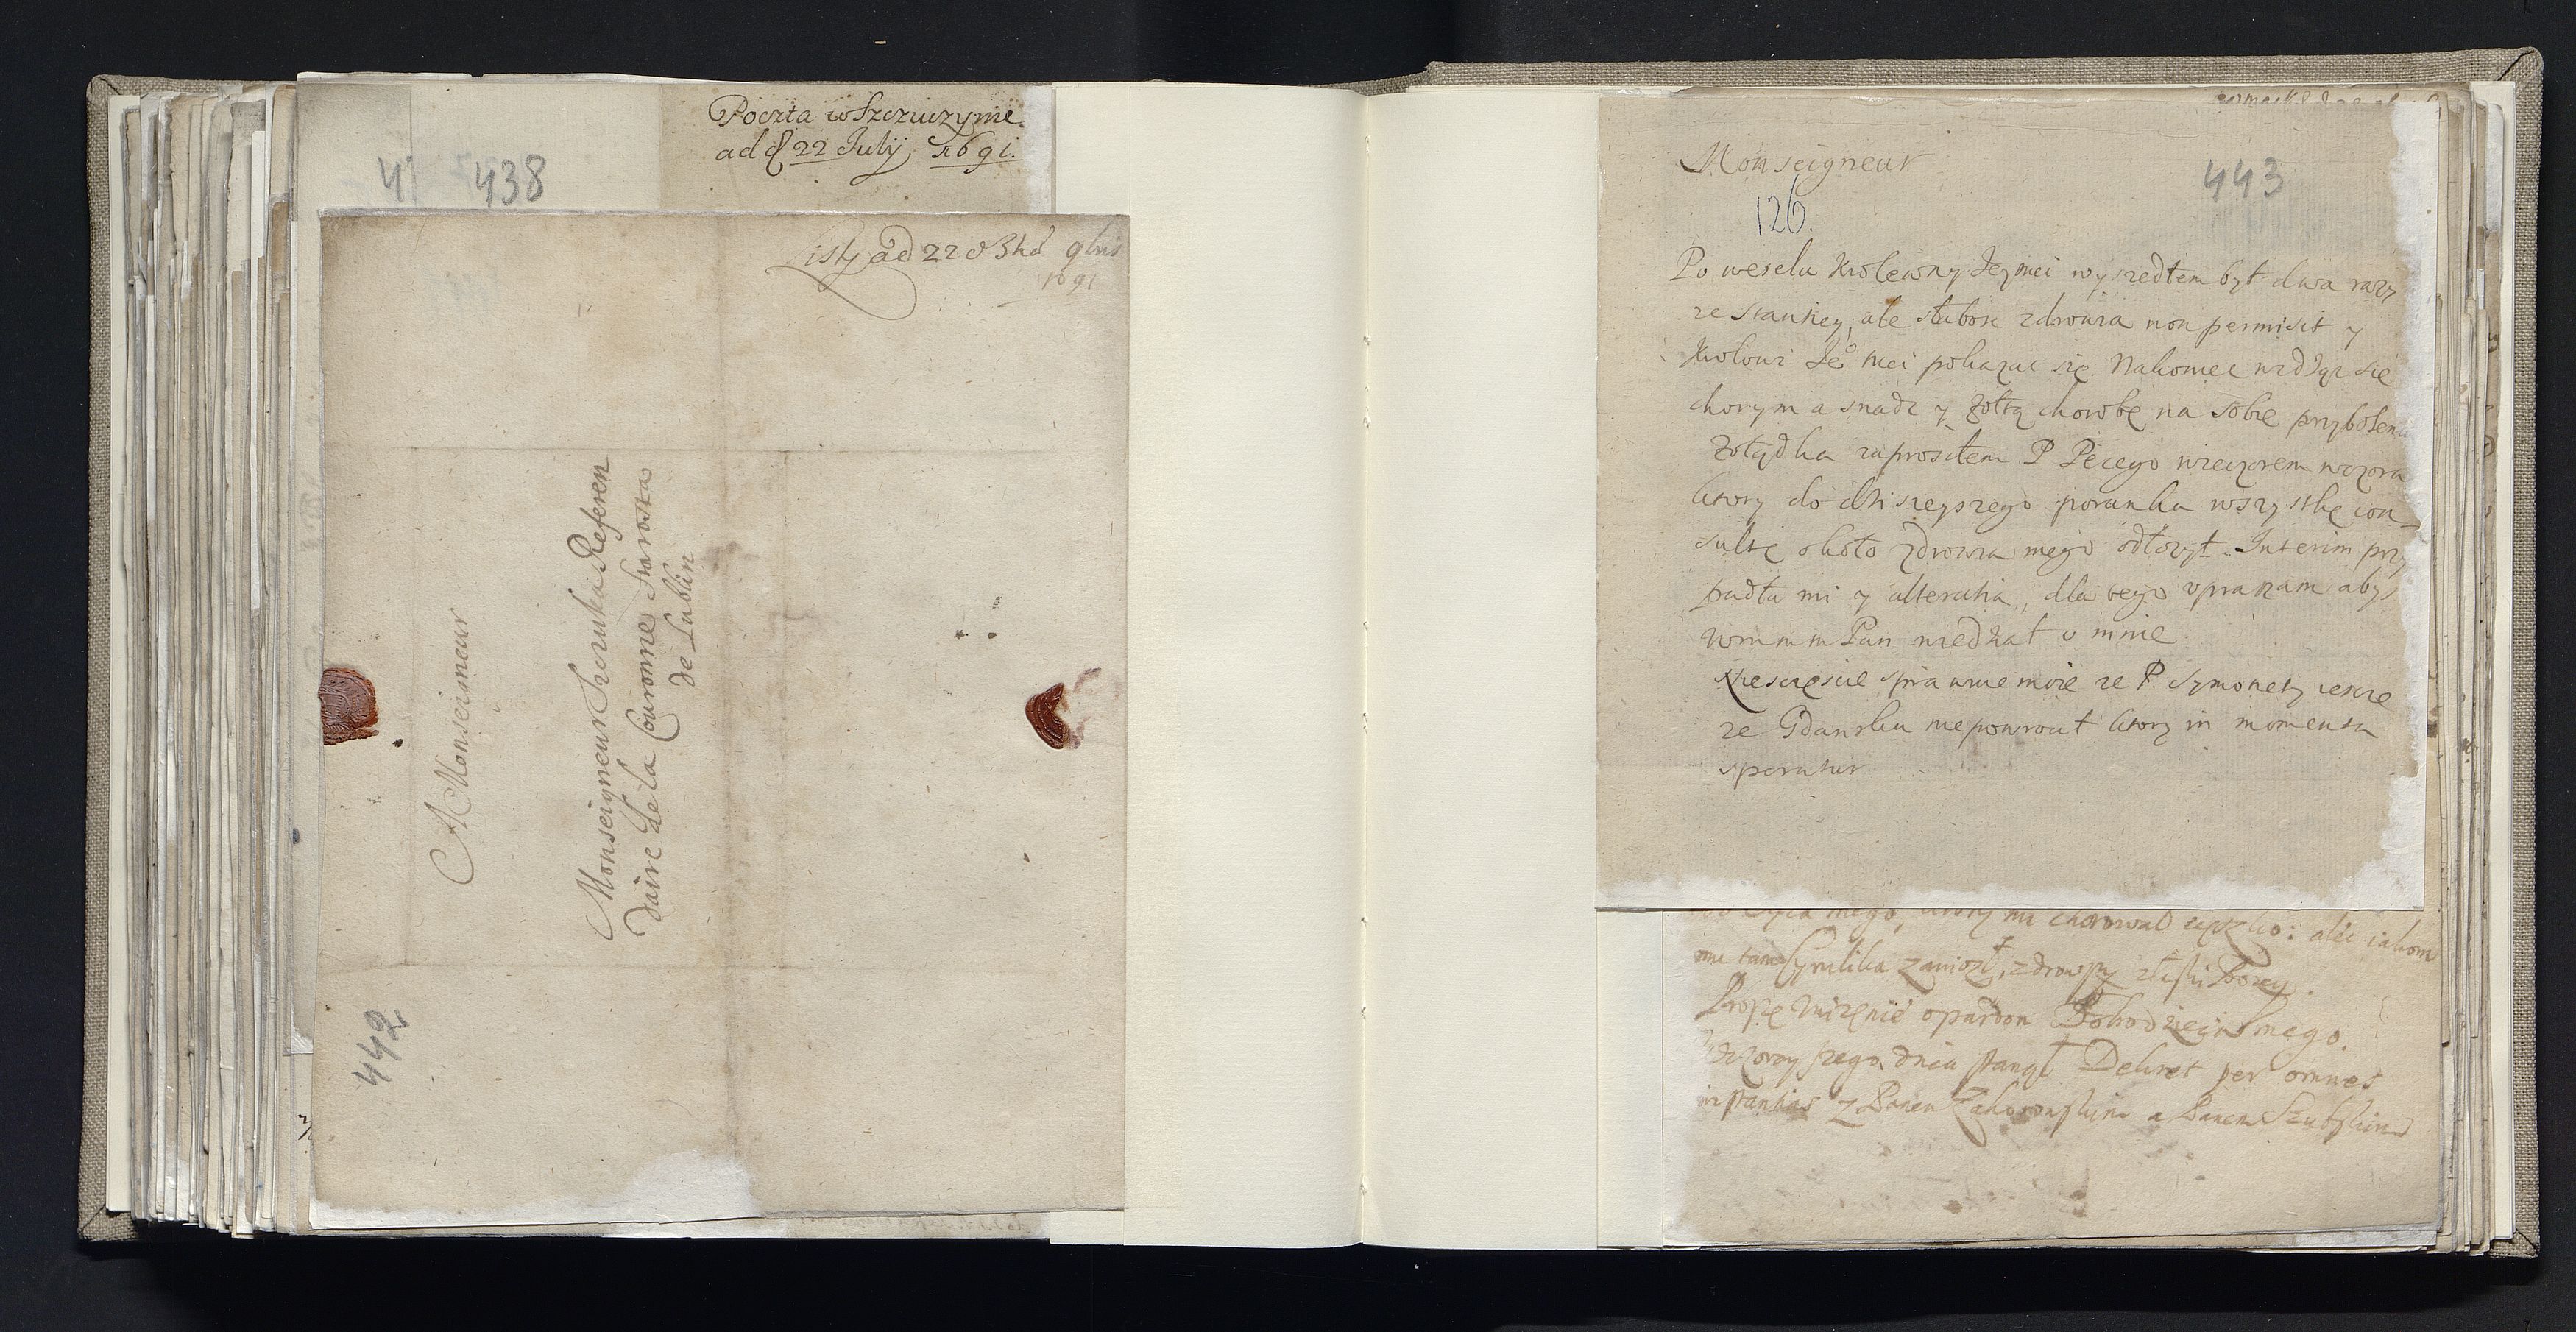 Poczta w Szczuczynie.
ad d 22 Julij 1691.
41 438
listy ad 22 9bris
1691
A Monseigneur
Monseigneur Szczuka Referen
daire de la Couronne Starosta
de Lublin
442
Monseigneur
443
126.
Po weselu Krolewny Jey mci wyszedłem był dwa razy
ze stancyey, ale słabosc zdrowia non permisit y
Krolowi Je° mci pokazac się. Nakoniec widząc się
chorym a snadz y zołtą chorobę na sobie przy boleniu
zołądka zaprosiłem P Pecego wieczorem wczora
ktory do dzisieyszego poranku wszystkę con-
sultę około zdrowia mego odłozył. Interim przy
padła mi y alteratia, dla tego upraszam abys
wmmm Pan niedzial o mnie
Niesczęscie sprawuie moie ze P. Symonety iescze
ze Gdanska nie powrocił ktory in momenta
speratur
mego, ktory mi chorował cięszko: alić iakom
mu tam Cyrulika zawiozł, zdrowszy z łaski Bozey.
Proszę unizenie o pardon Dobrodzieia mego.
Wczorayszego dnia stanął Dekret per omnes
instantias z Panem Zakrzewskim a Panem Szubskim